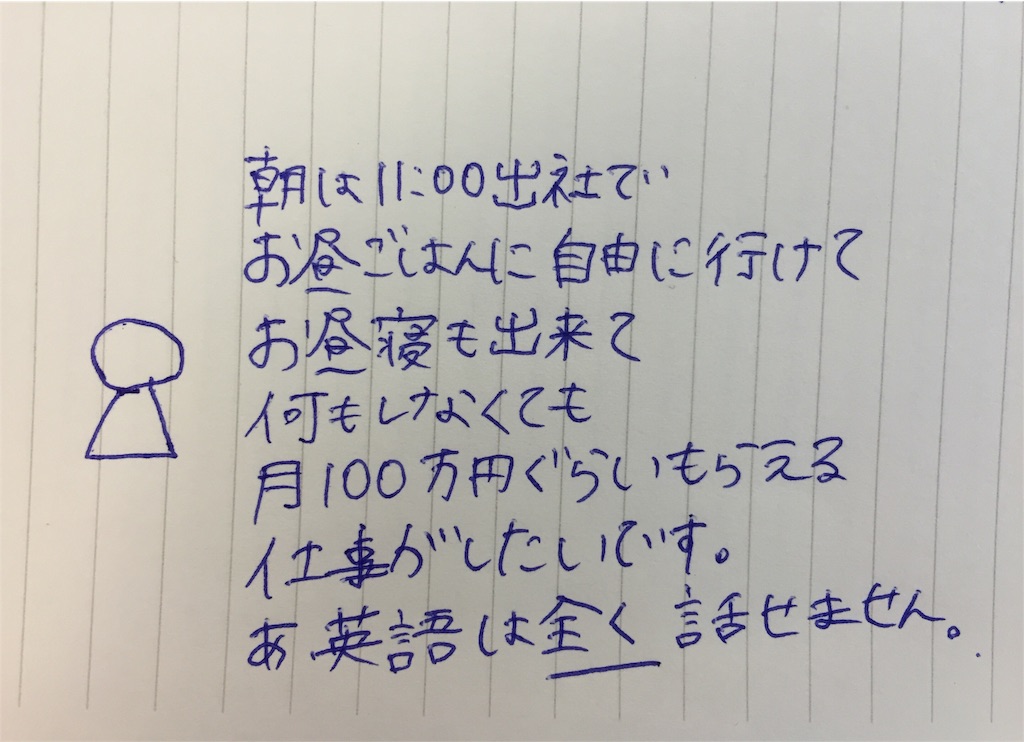 朝は11:00出社で
お昼ごはんに自由に行けて
お昼寝も出来て
何もしなくても
月100万円ぐらいもらえる
仕事がしたいです。
あ英語は全く話せません。